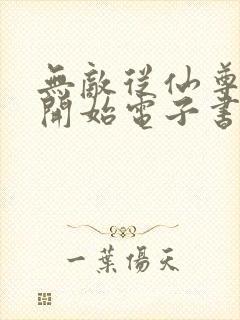 無敵從仙尊
開始電子書
一葉傷天